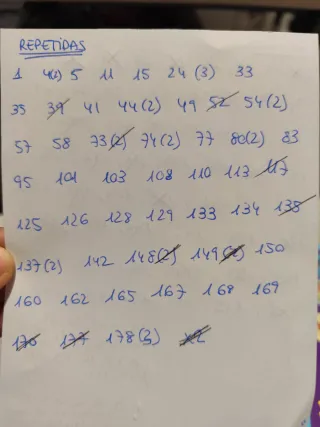 REPETIDAS
1 4(2) 5 11 15 24 (3) 33
35 39 41 44(2) 49 52 54(2)
57 58 73(2) 74(2) 77 80(2) 83
95 101 103 108 110 113 117
125 126 128 129 133 134 135
137(2) 142 148(2) 149 150
160 162 165 167 168 169
170 177 178(3)